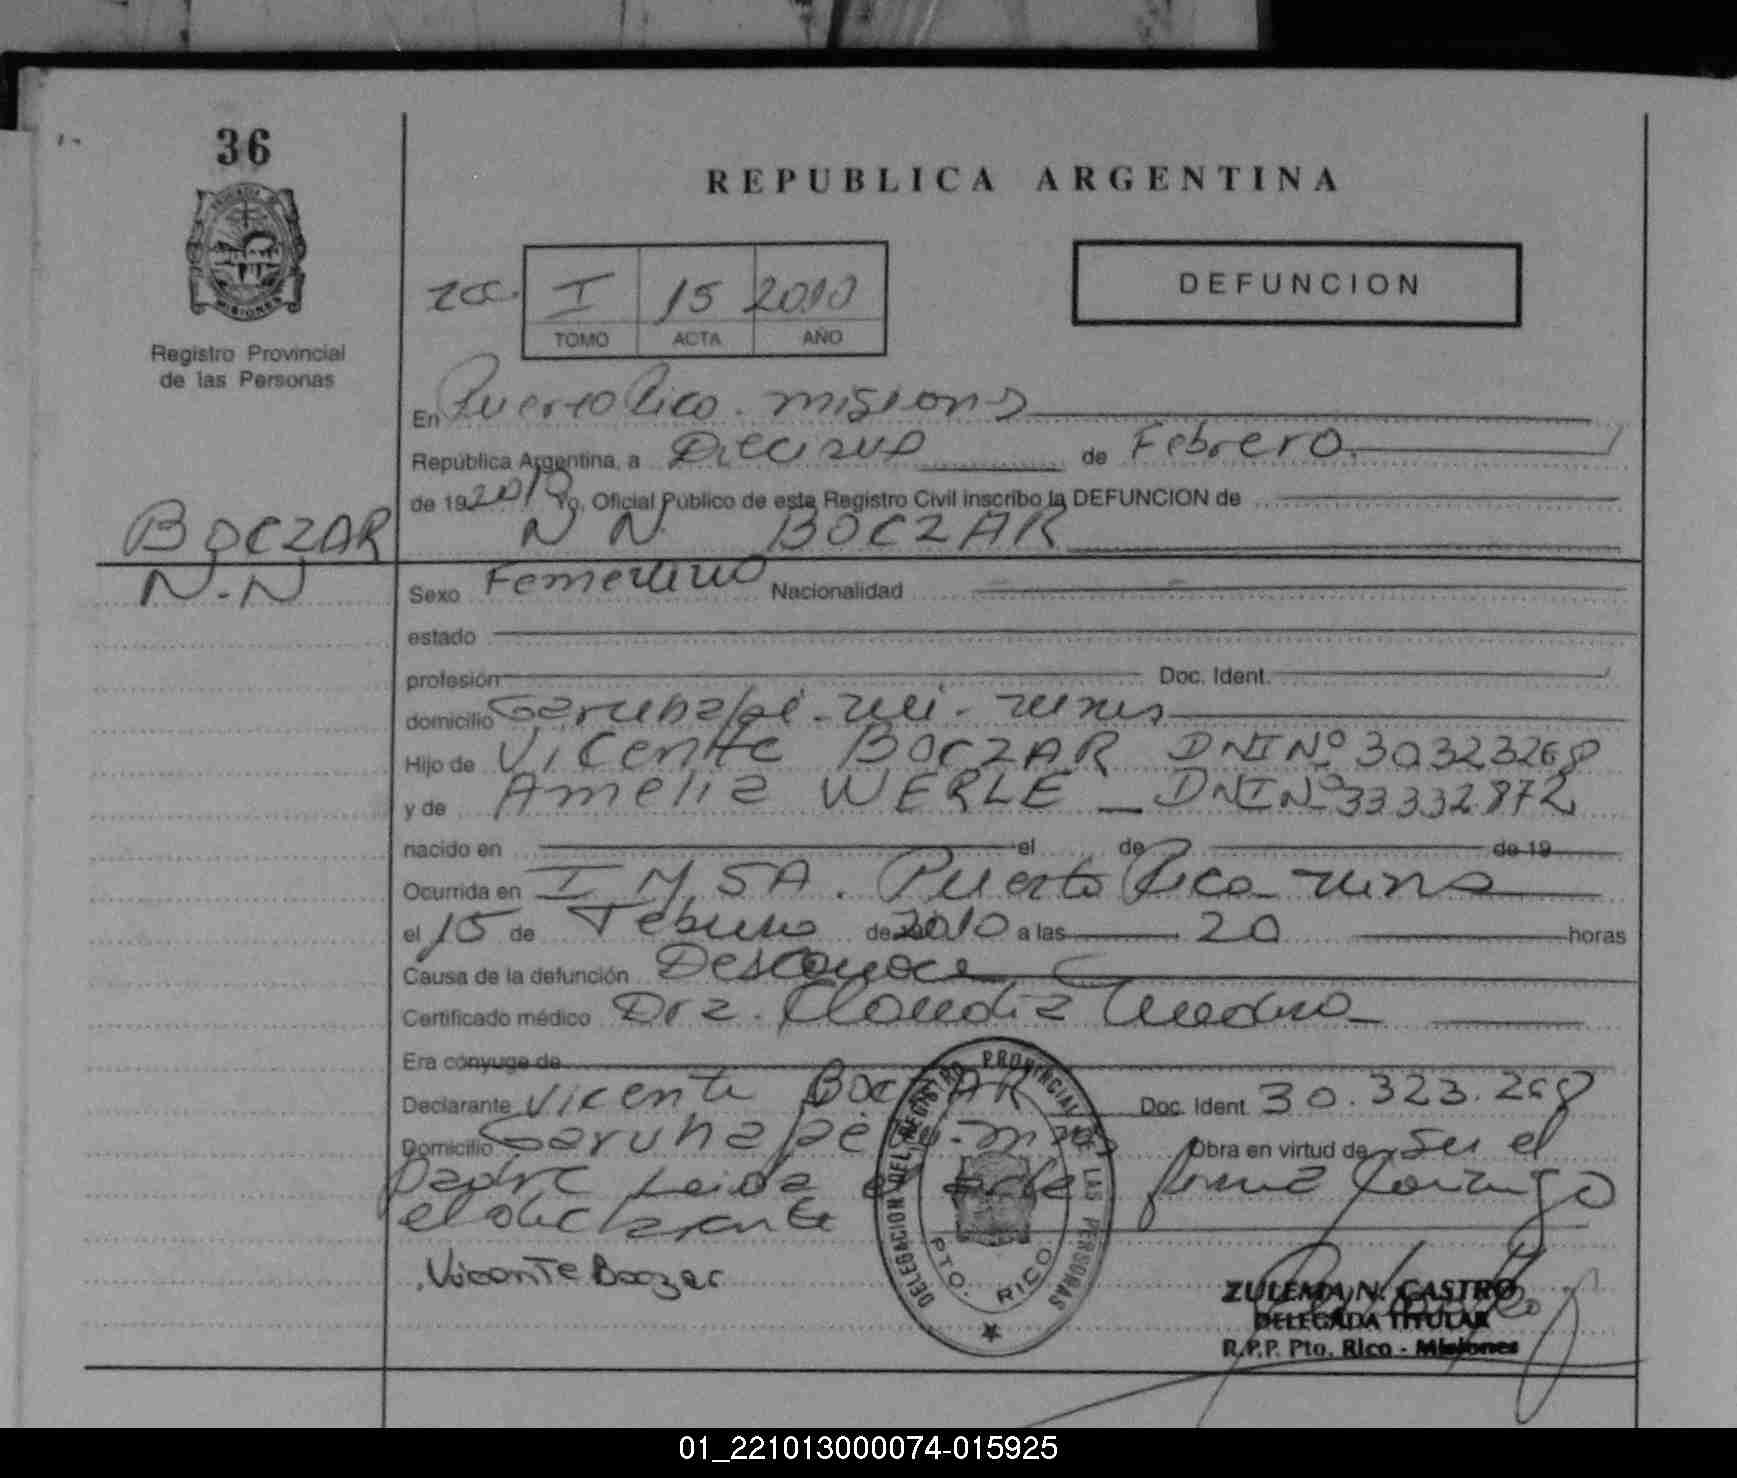 36
MISIONES
Registro Provincial
de las Personas
REPUBLICA ARGENTINA
I 15 2010
TOMO ACTA AÑO
DEFUNCION
En Puerto Rico. misiones
República Argentina, a de Febrero
de 19 2010 Yo, Oficial Público de este Registro Civil inscribo la DEFUNCION de
N N BOCZAR
BOCZAR
N.N
Sexo Femenino Nacionalidad
estado
profesión Doc. Ident.
domicilio Garuhapé
Hijo de Vicente BOCZAR DNI Nº 30323268
y de Amelia WERLE - DNI Nº 33332872
nacido en el de de 19
Ocurrida en Puerto Rico
el 15 de Febrero de 2010 a las 20 horas
Causa de la defunción Desconoce
Certificado médico Dra. Claudia
Era cónyuge de
Declarante Vicente BOCZAR Doc. Ident 30.323.268
Domicilio Garuhapé Obra en virtud de Ser el
padre Leida el acta firma conmigo
el declarante
Vicente Boczar
DELEGACION DEL REGISTRO PROVINCIAL DE LAS PERSONAS
PTO. RICO
ZULEMA N. CASTRO
DELEGADA TITULAR
R.P.P. Pto. Rico - Misiones
01_221013000074-015925